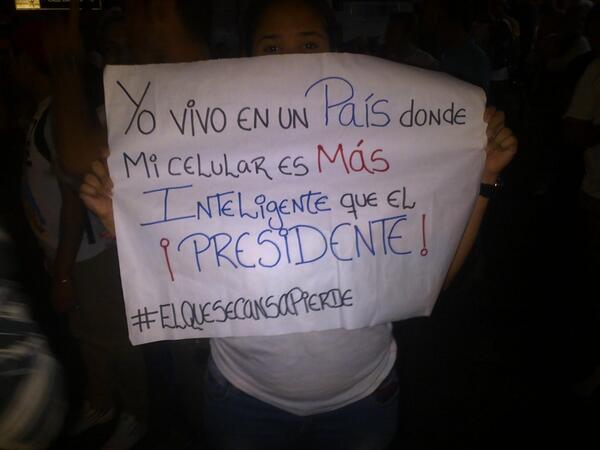 Yo vivo en un País donde
mi celular es Más
Inteligente que el
¡PRESIDENTE!
#ELQUESECANSAPIERDE